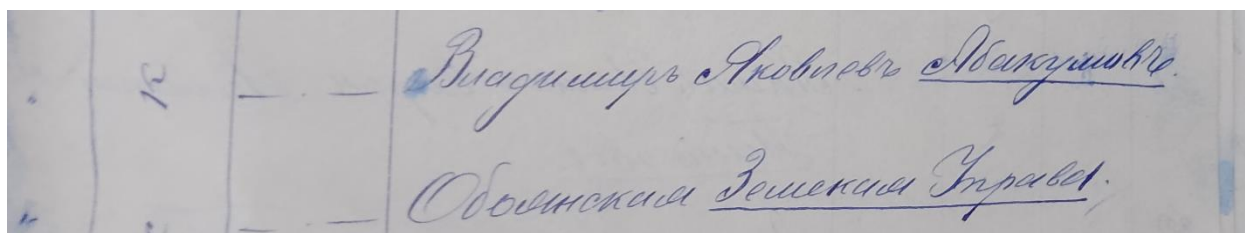 К
Владимиръ Яковлевъ Абакумовъ.
Обоянская Земская Управа.